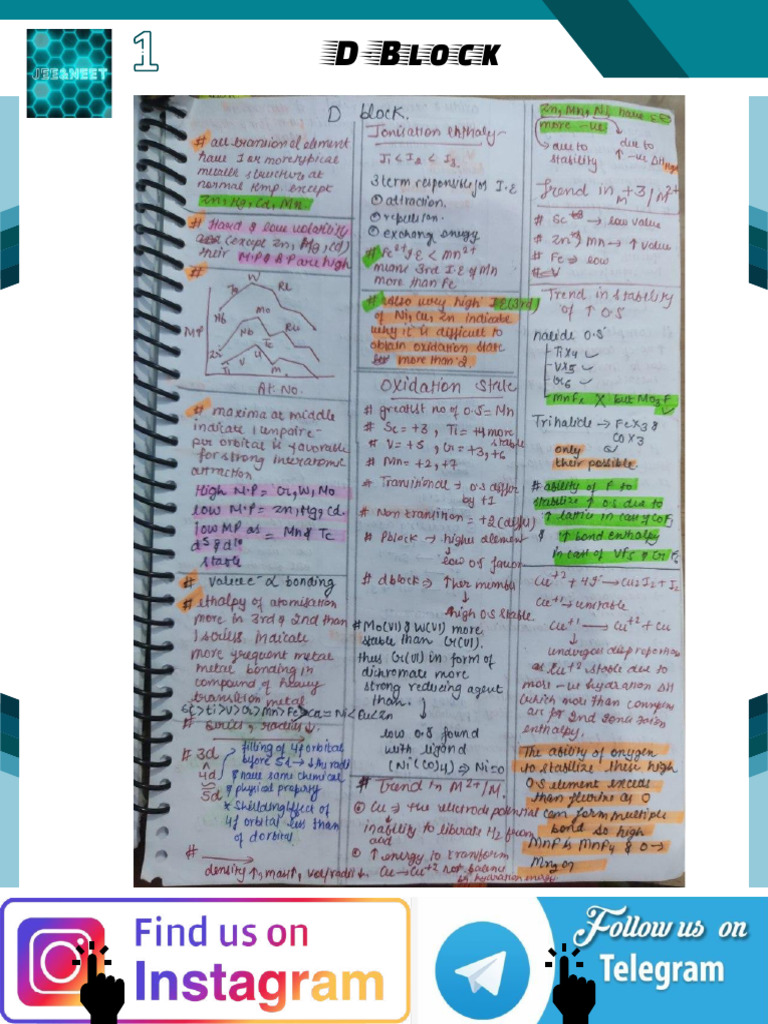 JEE&NEET
1
D-BLOCK
D block.
# all transition element
have 1 or more typical
metallic structure at
normal temp. except
Zn, Hg, Cd, Mn.
# Hard & low volatility
(except Zn, Hg, Cd)
their M.P & B.P are high
#
W
Ta Re
Mo
Nb Ru
Tc
MP
At. No.
# maxima at middle
indicate 1 unpaire-
per orbital is favorable
for strong interatomic
attraction
High M.P = Cr, W, Mo
low M.P = Zn, Hg, Cd.
low MP as = Mn & Tc
d5 & d10
stable
# valence e- α bonding
# ethalpy of atomisation
more in 3rd & 2nd than
1 series indicate
more frequent metal
metal bonding in
compound of heavy
transition metal
Sc > Ti > V > Cr > Mn > Fe > Co = Ni < Cu < Zn
# series, radius ↓.
# 3d
4d
5d
filling of 4f orbital
before 5d → ↓ the radii
& have same chemical
& physical property
* Shielding effect of
4f orbital less than
of d orbital.
#
density ↑, mass ↑, vol/radii ↓.
Ionisation enthalpy-
I1 < I2 < I3.
3 term responsible for I.E
① attraction.
② repulsion.
③ exchang energy
# Fe2+ I.E < Mn2+
means 3rd I.E of Mn
more than Fe
# also very high I.E (3rd)
of Ni, Cu, Zn indicate
why it is difficult to
obtain oxidation state
more than 2.
Oxidation State
# greatest no of O.S = Mn
# Sc = +3, Ti = +4 more
stable
# V = +5, Cr = +3, +6
# Mn = +2, +7
# Transitional → O.S differ
by +1
# Non transition = +2 (differ)
# P block → higher element
↓
low O.S favor
# d block ⇒ ↑her member
↓
high O.S stable.
# Mo(VI) & W(VI) more
stable than Cr(VI).
thus Cr(VI) in form of
dichromate more
strong reducing agent
than.
↓
low O.S found
with ligand
(Ni(CO)4) ⇒ Ni=0
# Trend in M2+/M.
① Cu ⇒ +ve electrode potential
inability to liberate H2 from
acid
② ↑ energy to transform
Cu → Cu+2 not balance
by hydration energy
Zn, Mn, Ni have E°
more -ve
→ due to
stability
due to
↑ -ve ΔH Hyd
Trend in M+3/M2+
# Sc+3 → low value
# Zn, Mn → ↑ value
# Fe → low
# V
Trend in stability
of ↑ O.S
halide O.S
TiX4
VX5
CrF6
MnF6 X but MnO3F
Trihalide → FeX3 &
CoX3
only
their possible
# ability of F to
stabilize ↑ O.S due to
↑ lattice in case of CoF3
& ↑ bond enthalpy
in case of VF5 & CrF6
Cu+2 + 4I- → Cu2I2 + I2
Cu+1 → unstable
Cu+1 → Cu+2 + Cu
↓
undergoes disproportion
as Cu+2 stable due to
more -ve hydration ΔH
which more than compen
ate for 2nd Ionisation
enthalpy.
The ability of oxygen
to stabilize these high
O.S element exceed
than flurine as O
can form multiple
bond so high
MnF is MnF4 & O →
Mn2O7
Find us on
Instagram
Follow us on
Telegram